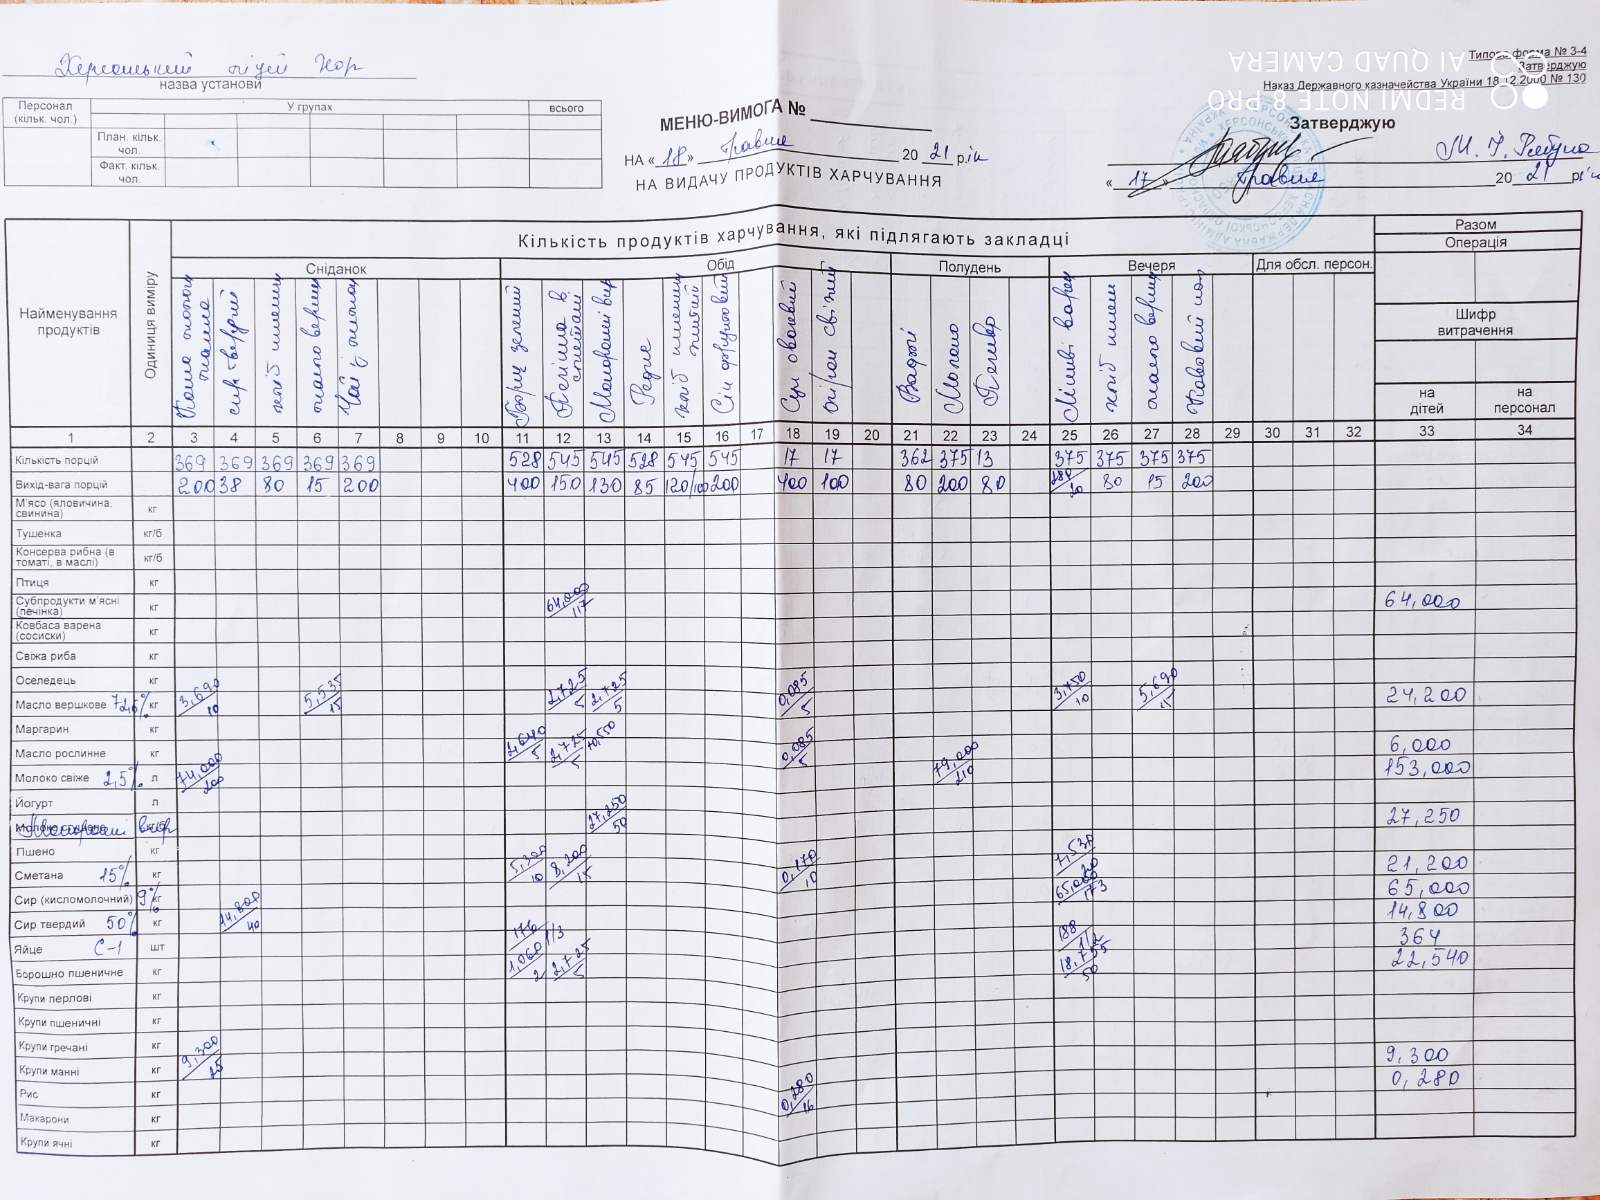 Типова форма № 3-4
Затверджую
Наказ Державного казначейства України 18.12.2000 № 130
AI QUAD CAMERA
REDMI NOTE 8 PRO
Херсонський ліцей
назва установи
Персонал (кільк. чол.) У групах всього
План. кільк. чол.
Факт. кільк. чол.
МЕНЮ-ВИМОГА №
НА « 18 » травня 20 21 рік
НА ВИДАЧУ ПРОДУКТІВ ХАРЧУВАННЯ
Затверджую
« 17 » травня 20 21 рік
Найменування продуктів
Одиниця виміру
Кількість продуктів харчування, які підлягають закладці
Разом
Операція
Шифр витрачення
на дітей
на персонал
Сніданок Обід Полудень Вечеря Для обсл. персон.
Каша молочна манна
сир твердий
хліб пшен
масло верш
Чай з
Борщ зелений
Печінка в сметані
Макарони
Редис
хліб
Сік фруктовий
Суп овочевий
огірок свіжий
Молоко
Печиво
хліб пшен
масло верш
1 2 3 4 5 6 7 8 9 10 11 12 13 14 15 16 17 18 19 20 21 22 23 24 25 26 27 28 29 30 31 32 33 34
Кількість порцій 369 369 369 369 369 528 545 545 528 545 545 17 17 362 375 13 375 375 375 375
Вихід-вага порцій 200 38 80 15 200 400 150 130 85 120/100 200 400 100 80 200 80 180/20 80 15 200
М'ясо (яловичина, свинина) кг
Тушенка кг/б
Консерва рибна (в томаті, в маслі) кг/б
Птиця кг
Субпродукти м'ясні (печінка) кг 64,000/117 64,000
Ковбаса варена (сосиски) кг
Свіжа риба кг
Оселедець кг
Масло вершкове 72,5% кг 3,690/10 5,535/15 2,725/5 2,725/5 0,085/5 3,750/10 5,690/15 24,200
Маргарин кг
Масло рослинне кг 2,640/5 2,725/5 0,085/5 6,000
Молоко свіже 2,5% л 74,000/200 79,000/210 153,000
Йогурт л
Макарон вир 27,250/50 27,250
Пшено кг
Сметана 15% кг 5,300/10 8,200/15 0,170/10 7,530/20 21,200
Сир (кисломолочний) 9% кг 65,000/173 65,000
Сир твердий 50% кг 14,800/40 14,800
Яйце С-1 шт 176 1/3 188 1/2 364
Борошно пшеничне кг 1,060/2 2,725/5 18,755/50 22,540
Крупи перлові кг
Крупи пшеничні кг
Крупи гречані кг
Крупи манні кг 9,300/25 9,300
Рис кг 0,280/16 0,280
Макарони кг
Крупи ячні кг